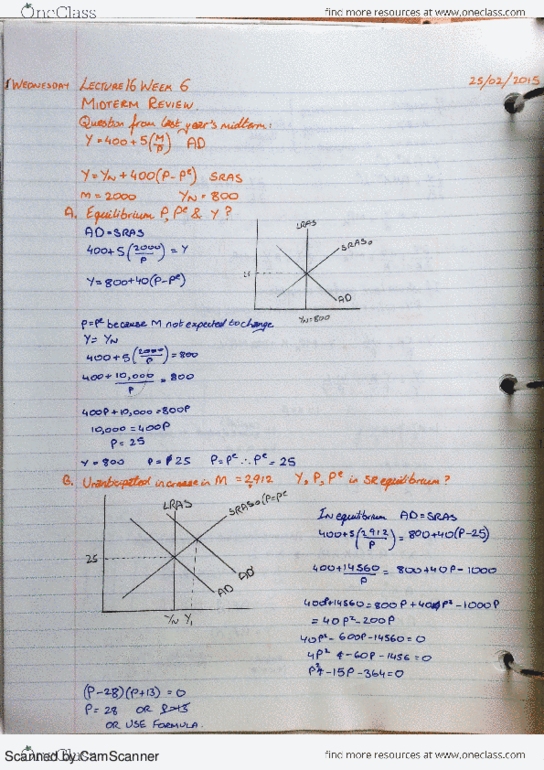 OneClass
find more resources at www.oneclass.com
WEDNESDAY LECTURE 16 WEEK 6 25/02/2015
MIDTERM REVIEW.
Question from last year's midterm:
Y = 400 + 5(M/P) AD
Y = YN + 400(P - Pe) SRAS
M = 2000 YN = 800
A. Equilibrium P, Pe & Y?
AD = SRAS
400 + 5(2000/P) = Y
Y = 800 + 40(P - Pe)
LRAS
SRAS0
AD
YN = 800
P = Pe because M not expected to change
Y = YN
400 + 5(2000/P) = 800
400 + 10,000/P = 800
400P + 10,000 = 800P
10,000 = 400P
P = 25
Y = 800 P = 25 P = Pe ∴ Pe = 25
B. Unanticipated increase in M = 2,912 Y, P, Pe in SR equilibrium?
LRAS
SRAS0 (P = Pe
25
AD'
AD
YN Y1
In equilibrium AD = SRAS
400 + 5(2912/P) = 800 + 40(P - 25)
400 + 14560/P = 800 + 40P - 1000
400P + 14560 = 800P + 40P² - 1000P
= 40P² - 200P
40P² - 600P - 14560 = 0
4P² - 60P - 1456 = 0
P² - 15P - 364 = 0
(P - 28)(P + 13) = 0
P = 28 OR P = 13
OR USE FORMULA.
Scanned by CamScanner
OneClass
find more resources at www.oneclass.com